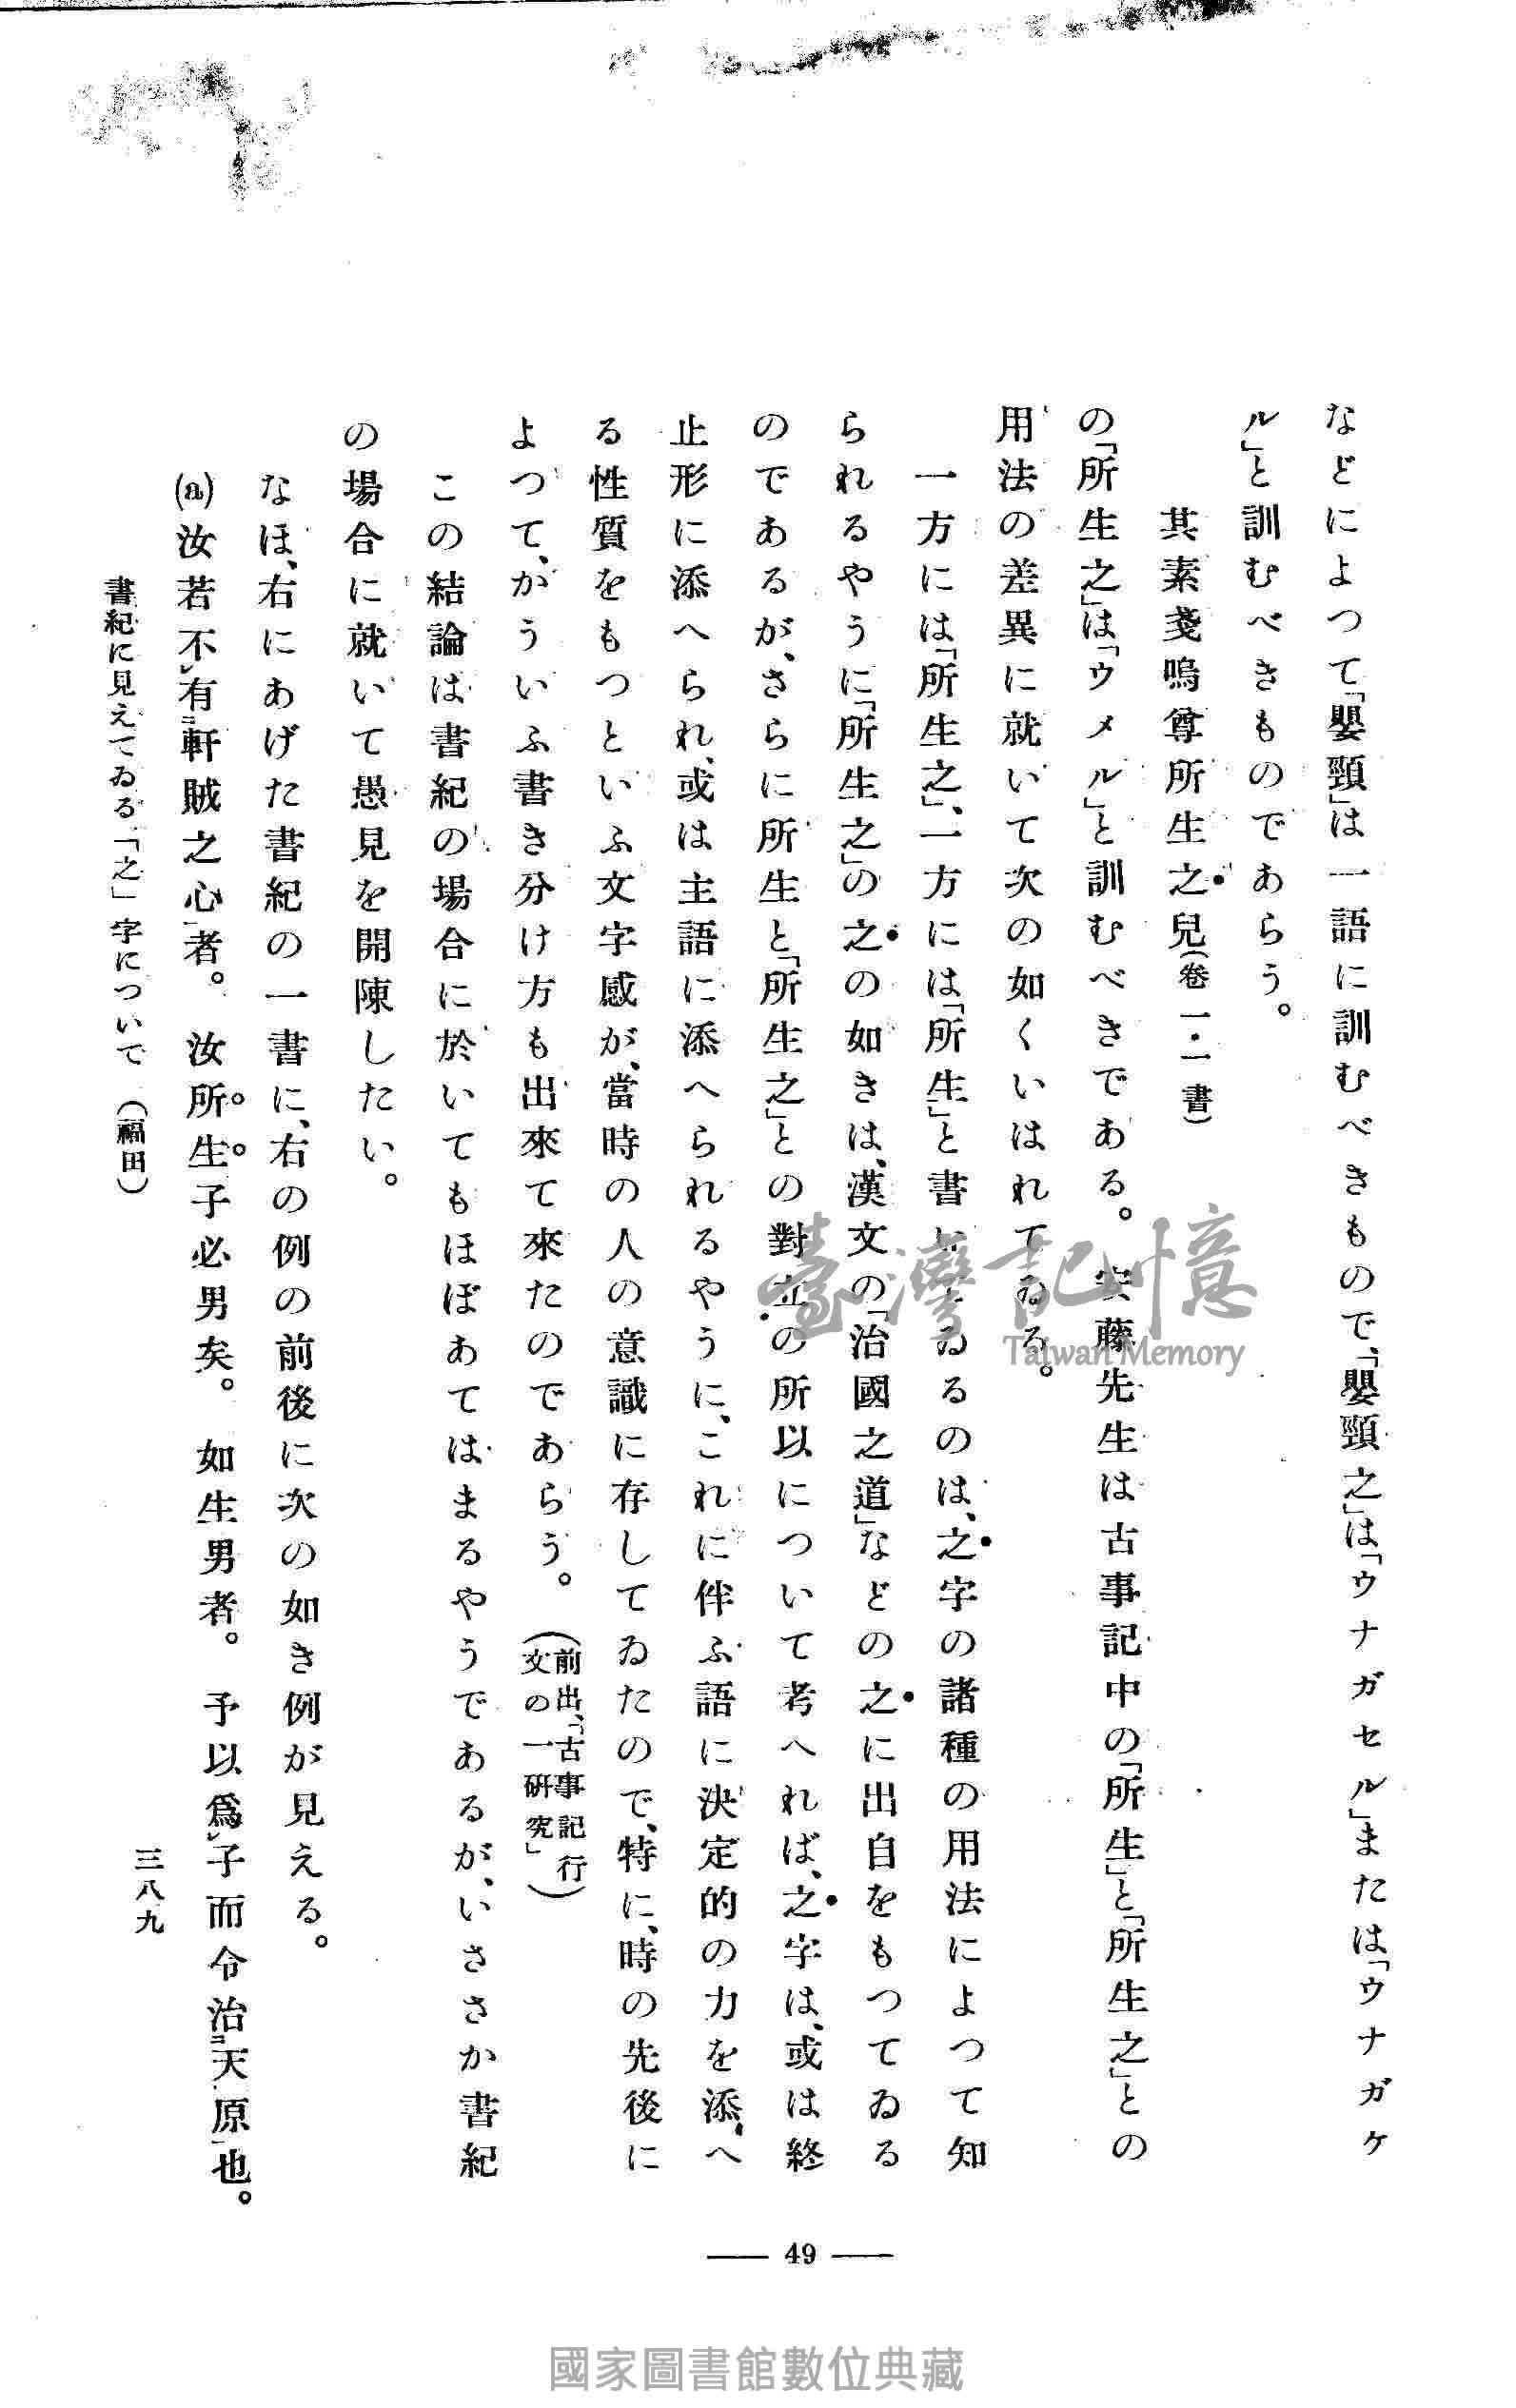 などによつて「嬰頸」は一語に訓むべきもので、「嬰頸之」は「ウナガセル」または「ウナガケ
ル」と訓むべきものであらう。
其素戔嗚尊所生之兒(卷一・一書)
の「所生之」は「ウメル」と訓むべきである。安藤先生は古事記中の「所生」と「所生之」との
用法の差異に就いて次の如くいはれてゐる。
一方には「所生之」、一方には「所生」と書 ゐるのは、之字の諸種の用法によつて知
られるやうに「所生之」の之の如きは、漢文の「治國之道」などの之に出自をもつてゐる
のであるが、さらに所生と「所生之」との對立の所以について考へれば、之字は、或は終
止形に添へられ、或は主語に添へられるやうに、これに伴ふ語に決定的の力を添へ
る性質をもつといふ文字感が、當時の人の意識に存してゐたので、特に、時の先後に
よつて、がういふ書き分け方も出來て來たのであらう。(前出、「古事記行
文の一研究」)
この結論は書紀の場合に於いてもほぼあてはまるやうであるが、いささか書紀
の場合に就いて愚見を開陳したい。
なほ、右にあげた書紀の一書に、右の例の前後に次の如き例が見える。
(a)汝若不レ有二軒賊之心一者。汝所生子必男矣。如生男者。予以爲レ子而令治二天原一也。
書紀に見えてゐる「之」字について(福田)
三八九
— 49 —
臺灣記憶
Taiwan Memory
國家圖書館數位典藏